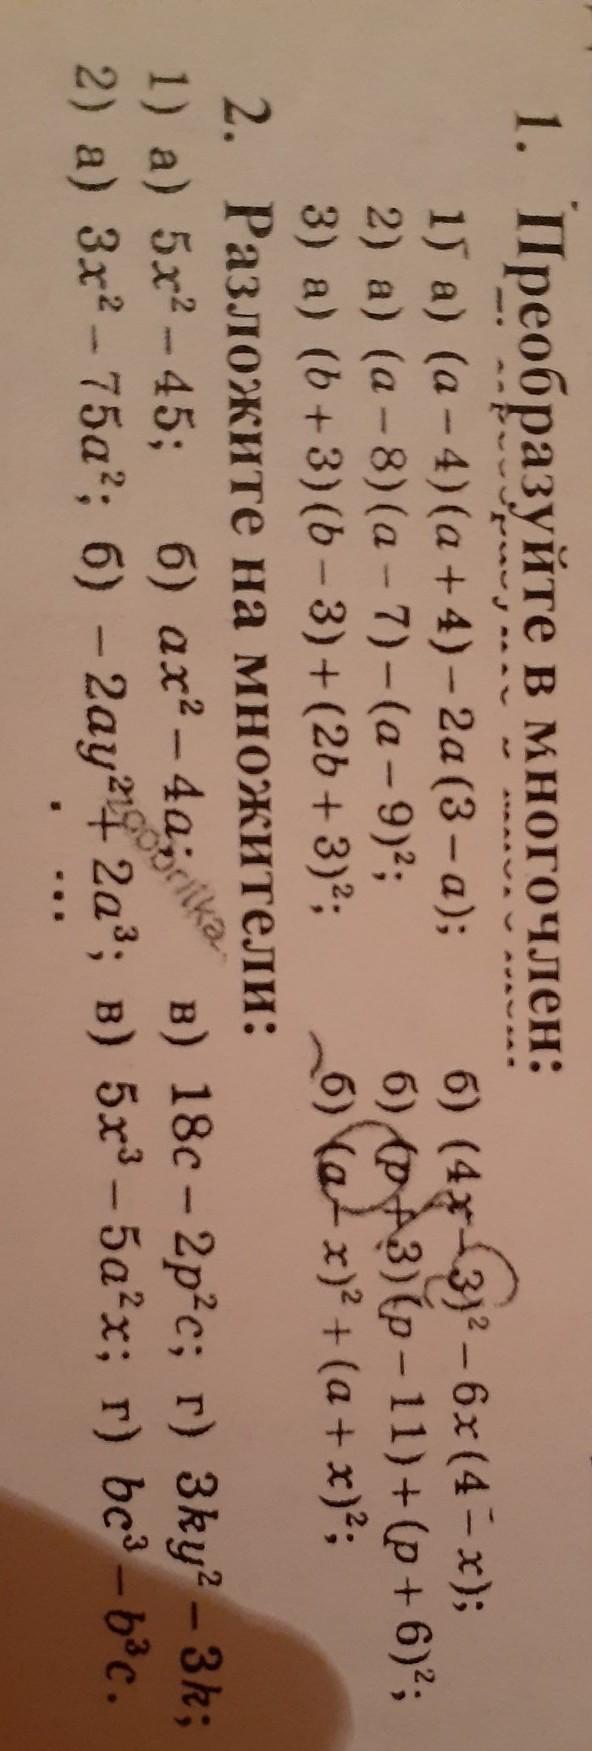 1. Преобразуйте в многочлен:
1) а) (a − 4)(a + 4) − 2a(3 − a); б) (4x − 3)² − 6x(4 − x);
2) а) (a − 8)(a − 7) − (a − 9)²; б) (p + 3)(p − 11) + (p + 6)²;
3) а) (b + 3)(b − 3) + (2b + 3)²; б) (a − x)² + (a + x)²;
2. Разложите на множители:
1) а) 5x² − 45; б) ax² − 4a; в) 18c − 2p²c; г) 3ky² − 3k;
2) а) 3x² − 75a²; б) −2ay² + 2a³; в) 5x³ − 5a²x; г) bc³ − b³c.